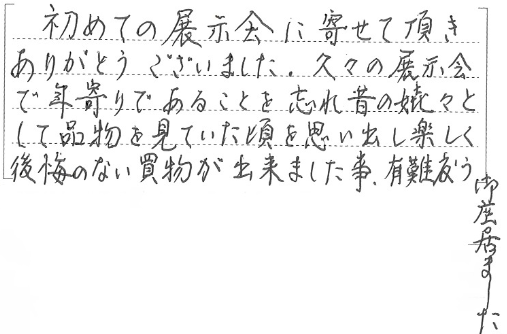 初めての展示会に寄せて頂き
ありがとうございました。久々の展示会
で年寄りであることを忘れ昔の嬉々と
して品物を見ていた頃を思い出し楽しく
後悔のない買物が出来ました事、有難う
御座居ました